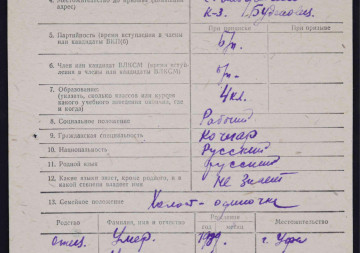 4. Местожительство до призыва (домашний адрес)
к-з. г. Буд
5. Партийность (время вступления в члены или кандидаты ВКП(б)
При призыве
б/п.
6. Член или кандидат ВЛКСМ (время вступления в члены или кандидаты ВЛКСМ)
При призыве
б/п.
7. Образование:
(указать, сколько классов или курсов какого учебного заведения окончил, где и когда)
4 кл.
8. Социальное положение
Рабочий
9. Гражданская специальность
Кочегар
10. Национальность
Русский
11. Родной язык
русский
12. Какие языки знает, кроме родного, и в какой степени владеет ими
Не знает
13. Семейное положение
Холост - одиночка
Родство
Фамилия, имя и отчество
Рождения
год
месяц
Местожительство
отец.
Умер.
г. Уфа